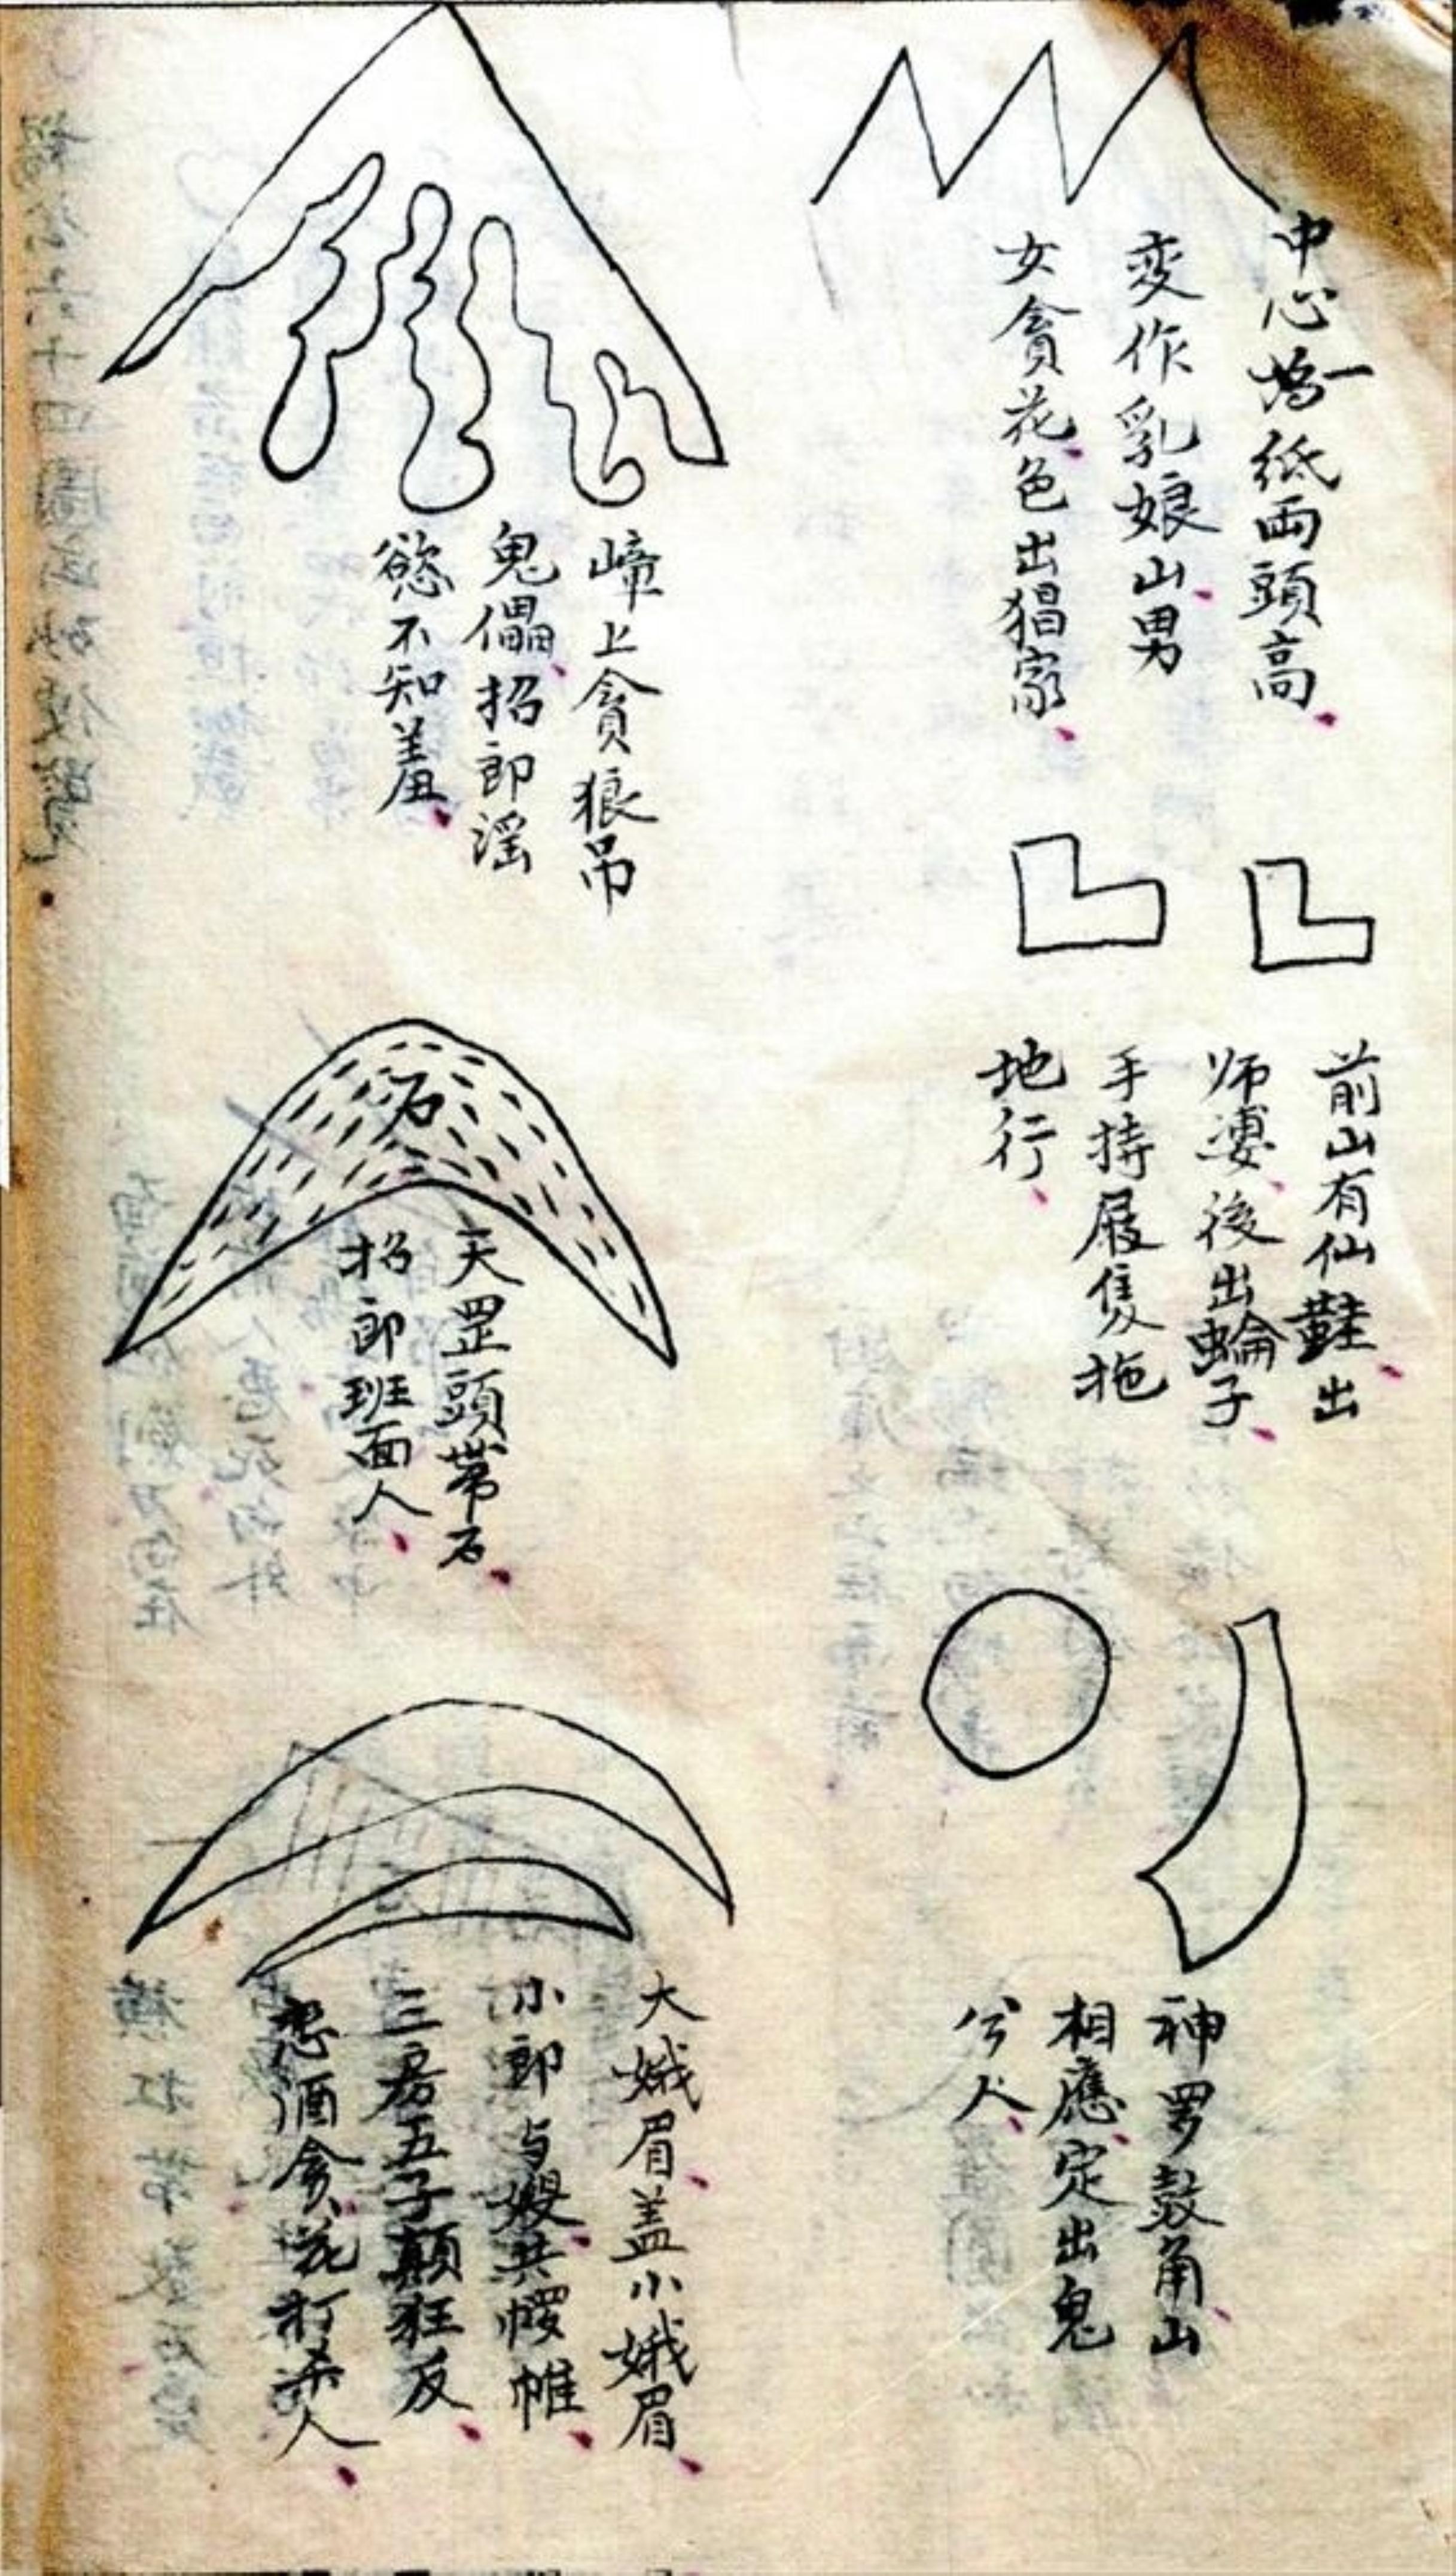 中心塢一低両頭高
変作乳娘山男
女貪花色出猖家
前山有仙鞋出
师婆後出蝓子
手持屐隻拖
地行
神罗鼓角山
相應定出鬼
兮人
啼上貪狼吊
鬼儡招郎滛
慾不知羞
石
天罡頭带石
招郎班面人
大娥眉盖小娥眉
小郎与嫂共幔帷
三房五子顛狂反
愁酒貪花打杀人